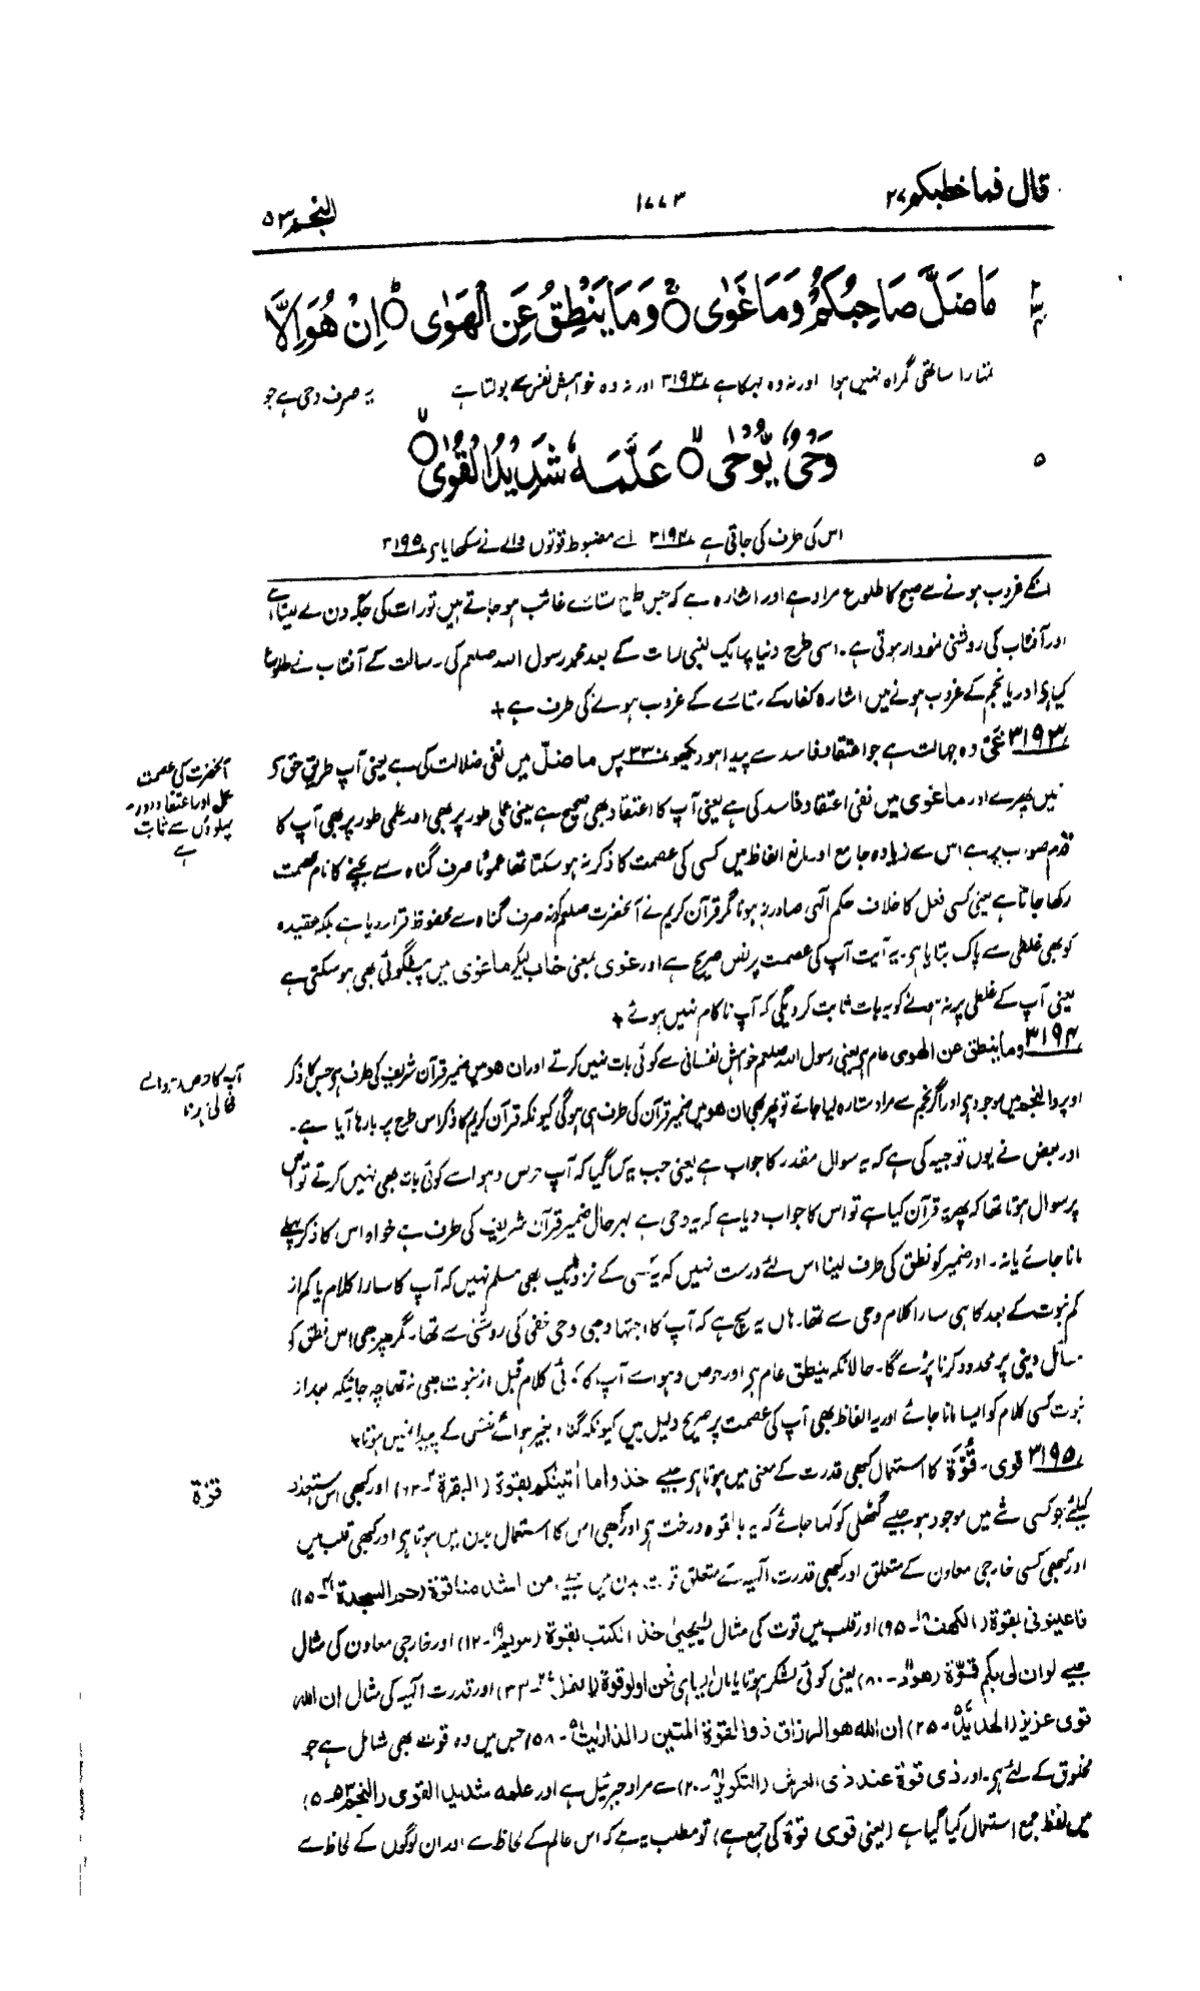 قال فما خطبکم ۲۷
۱۷۷۳
النجم ۵۳
مَا ضَلَّ صَاحِبُكُمْ وَمَا غَوٰى ۚ وَمَا يَنْطِقُ عَنِ الْهَوٰى ۭ اِنْ هُوَ اِلَّا
تمہارا ساتھی گمراہ نہیں ہوا اور نہ وہ بہکا ہے ۳۱۹۳ اور نہ وہ خواہش نفس سے بولتا ہے یہ صرف وحی ہے جو
وَحْىٌ يُّوْحٰى ۙ عَلَّمَهٗ شَدِيْدُ الْقُوٰى ۙ
۵
اس کی طرف کی جاتی ہے ۳۱۹۴ اسے مضبوط قوتوں والے نے سکھایا ہے ۳۱۹۵
انکے غروب ہونے سے صبح کا طلوع مراد ہے اور اشارہ ہے کہ جس طرح ستارے غائب ہو جاتے ہیں تو رات کی جگہ دن لے لیتا ہے
اور آفتاب کی روشنی نمودار ہوتی ہے۔ اسی طرح دنیا پر ایک لمبی رات کے بعد محمد رسول اللہ صلعم کی رسالت کے آفتاب نے طلوع
کیا ہے اور یا نجم کے غروب ہونے میں اشارہ کفار کے ستارے کے غروب ہونے کی طرف ہے +
۳۱۹۳ غَیّ وہ جہالت ہے جو اعتقاد فاسد سے پیدا ہو دیکھو ۳۳۰ پس ما ضلّ میں نفی ضلالت کی ہے یعنی آپ طریق حق کو
نہیں پھرے اور ما غوی میں نفی اعتقاد فاسد کی ہے یعنی آپ کا اعتقاد بھی صحیح ہے یعنی عملی طور پر بھی اور علمی طور پر بھی آپ کا
قدم صواب پر ہے اس سے زیادہ جامع اور مانع الفاظ میں کسی کی عصمت کا ذکر نہ ہو سکتا تھا عموماً صرف گناہ سے بچنے کا نام عصمت
رکھا جاتا ہے یعنی کسی فعل کا خلاف حکم الٰہی صادر نہ ہونا مگر قرآن کریم نے آنحضرت صلعم کو نہ صرف گناہ سے محفوظ قرار دیا ہے بلکہ عقیدہ
کو بھی غلطی سے پاک بتایا ہے۔ یہ آیت آپ کی عصمت پر نص صریح ہے اور غوی بمعنی خاب لیکر ما غوی میں پیشگوئی بھی ہو سکتی ہے
یعنی آپ کے غلطی پر نہ ہونے کو یہ بات ثابت کر دیگی کہ آپ ناکام نہیں ہوئے +
آنحضرت کی عصمت
عمل اور اعتقاد دونوں
پہلوؤں سے ثابت
ہے
۳۱۹۴ وما ینطق عن الھوی عام ہے یعنی رسول اللہ صلعم خواہش نفسانی سے کوئی بات نہیں کرتے اور ان ھو میں ضمیر قرآن شریف کی طرف ہے جس کا ذکر
اوپر والنجم میں موجود ہے اور اگر نجم سے مراد ستارہ لیا جائے تو پھر بھی ان ھو میں ضمیر قرآن کی طرف ہی ہوگی کیونکہ قرآن کریم کا ذکر اس طرح پر بارہا آیا ہے۔
اور بعض نے یوں توجیہ کی ہے کہ یہ سوال مقدر کا جواب ہے یعنی جب یہ کہا گیا کہ آپ حرص و ہوا سے کوئی بات بھی نہیں کرتے تو اس
پر سوال ہوتا تھا کہ پھر یہ قرآن کیا ہے تو اس کا جواب دیا ہے کہ یہ وحی ہے بہر حال ضمیر قرآن شریف کی طرف ہے خواہ اس کا ذکر پہلے
مانا جائے یا نہ۔ اور ضمیر کو نطق کی طرف لینا اس لئے درست نہیں کہ یہ کسی کے نزدیک بھی مسلم نہیں کہ آپ کا سارا کلام یا کم از
کم نبوت کے بعد کا ہی سارا کلام وحی سے تھا۔ ہاں یہ سچ ہے کہ آپ کا اجتہاد بھی وحی خفی کی روشنی سے تھا۔ مگر پھر بھی اس نطق کو
مسائل دینی پر محدود کرنا پڑے گا۔ حالانکہ ینطق عام ہے اور حرص و ہوا سے آپ کا کوئی کلام قبل از نبوت بھی نہ تھا چہ جائیکہ بعد از
نبوت کسی کلام کو ایسا مانا جائے اور یہ الفاظ بھی آپ کی عصمت پر صریح دلیل ہیں کیونکہ گناہ بغیر ہوائے نفس کے پیدا نہیں ہوتا +
آپ کا حرص و ہوا سے
خالی ہونا
۳۱۹۵ قوی۔ قُوَّۃ کا استعمال کبھی قدرت کے معنی میں ہوتا ہے جیسے خذوا ما اٰتینٰکم بقوۃ (البقرۃ ۲-۶۳) اور کبھی اس استعداد
کیلئے جو کسی شے میں موجود ہو جیسے گٹھلی کو کہا جائے کہ یہ بالقوہ درخت ہے اور کبھی اس کا استعمال بدن میں ہوتا ہے اور کبھی قلب میں
اور کبھی کسی خارجی معاون کے متعلق اور کبھی قدرت الٰہیہ کے متعلق قوت بدن میں جیسے من اشد منا قوۃ (حم السجدۃ ۴۱-۱۵)
فاعینونی بقوۃ (الکھف ۱۸-۹۵) اور قلب میں قوت کی مثال یٰیحییٰ خذ الکتب بقوۃ (مریم ۱۹-۱۲) اور خارجی معاون کی مثال
جیسے لو ان لی بکم قوّۃ (ھود ۱۱-۸۰) یعنی کوئی لشکر ہوتا یا مال ایسا ہی نحن اولوا قوۃ (النمل ۲۷-۳۳) اور قدرت الٰہیہ کی مثال ان اللہ
قوی عزیز (الحدید ۵۷-۲۵) ان اللہ ھو الرزاق ذو القوۃ المتین (الذاریات ۵۱-۵۸) جس میں وہ قوت بھی شامل ہے جو
مخلوق کے لئے ہے۔ اور ذی قوۃ عند ذی العرش (التکویر ۸۱-۲۰) سے مراد جبرئیل ہے اور علمہ شدید القوی (النجم ۵۳-۵)
میں لفظ جمع استعمال کیا گیا ہے (یعنی قوی قوۃ کی جمع ہے) تو مطلب یہ ہے کہ اس عالم کے لحاظ سے اور ان لوگوں کے لحاظ سے
قوۃ